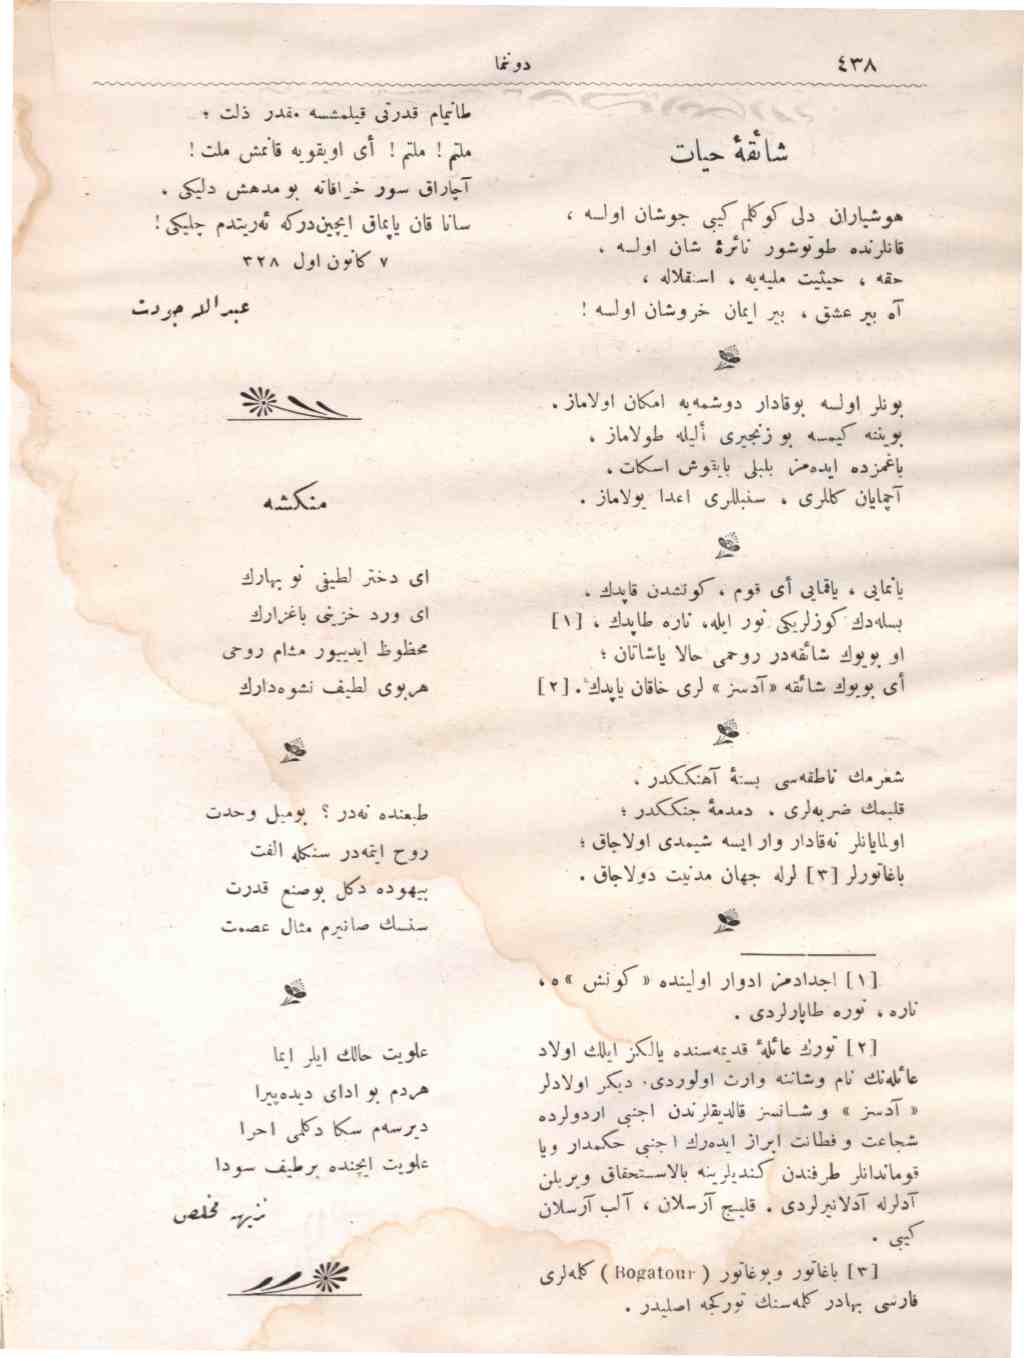 ٤٣٨
دوننما
شائقهٔ حیات
هوشیاران دلی کوکلم کیبی جوشان اولسه ،
قانلرنده طوتوشور نائرهٔ شان اولسه ،
حقه ، حیثیت ملیه‌یه ، استقلاله ،
آه بیر عشق ، بیر ایمان خروشان اولسه !
بونلر اولسه بوقادار دوشمه‌یه امکان اولاماز .
بویننه کیمسه بو زنجیری ألیله طولاماز ،
باغمزده ایده‌مز بلبلی بایقوش اسکات ،
آچمایان کللری ، سنبللری اعدا یولاماز .
یانمایی ، یاقمایی أی قوم ، کونشدن قاپدك ،
بسله‌دك کوزلریکی نور ایله، ناره طاپدك ، [١]
او بویوك شائقه‌در روحمی حالا یاشاتان ؛
أی بویوك شائقه «آدسز» لری خاقان یاپدك . [٢]
شعرمك ناطقه‌سی بستهٔ آهنککدر ،
قلبمك ضربه‌لری ، دمدمهٔ جنککدر ؛
اولمایانلر نه‌قادار وار ایسه شیمدی اولاجاق ؛
باغاتورلر [٣] لرله جهان مدنیت دولاجاق .
[١] اجدادمز ادوار اولینده «کونش» ه ،
ناره ، نوره طاپارلردی .
[٢] تورك عائلهٔ قدیمه‌سنده یالکز ایلك اولاد
عائله‌نك نام وشاننه وارث اولوردی. دیکر اولادلر
«آدسز» و شانسز قالدیقلرندن اجنبی اردولرده
شجاعت و فطانت ابراز ایده‌رك اجنبی حکمدار ویا
قوماندانلر طرفندن کندیلرینه بالاستحقاق ویریلن
آدلرله آدلانیرلردی . قلیج آرسلان ، آلب آرسلان
کیبی .
[٣] باغاتور وبوغاتور ( Bogatour ) کله‌لری
فارسی بهادر کله‌سنك تورکجه اصلیدر .
طانیمام قدرتی قیلمشسه مقدر ذلت ؛
ملتم ! ملتم ! أی اویقویه قانمش ملت !
آچاراق سور خرافاته بو مدهش دلیکی ،
سانا قان یاپماق ایچین‌درکه ئه‌ریتدم چلیکی !
٧ کانون اول ٣٢٨
عبدالله جودت
منکشه
ای دختر لطیفی نو بهارك
ای ورد خزینی باغزارك
محظوظ ایدییور مشام روحی
هربوی لطیف نشوه‌دارك
طبعنده نه‌در ؟ بومیل وحدت
روح ایتمه‌در سنکله الفت
بیهوده دکل بوصنع قدرت
سنسك صانیرم مثال عصمت
علویت حالك ایلر ایما
هردم بو ادای دیده‌پیرا
دیرسه‌م سکا دکلمی احرا
علویت ایچنده برطیف سودا
نزیهه مخلص